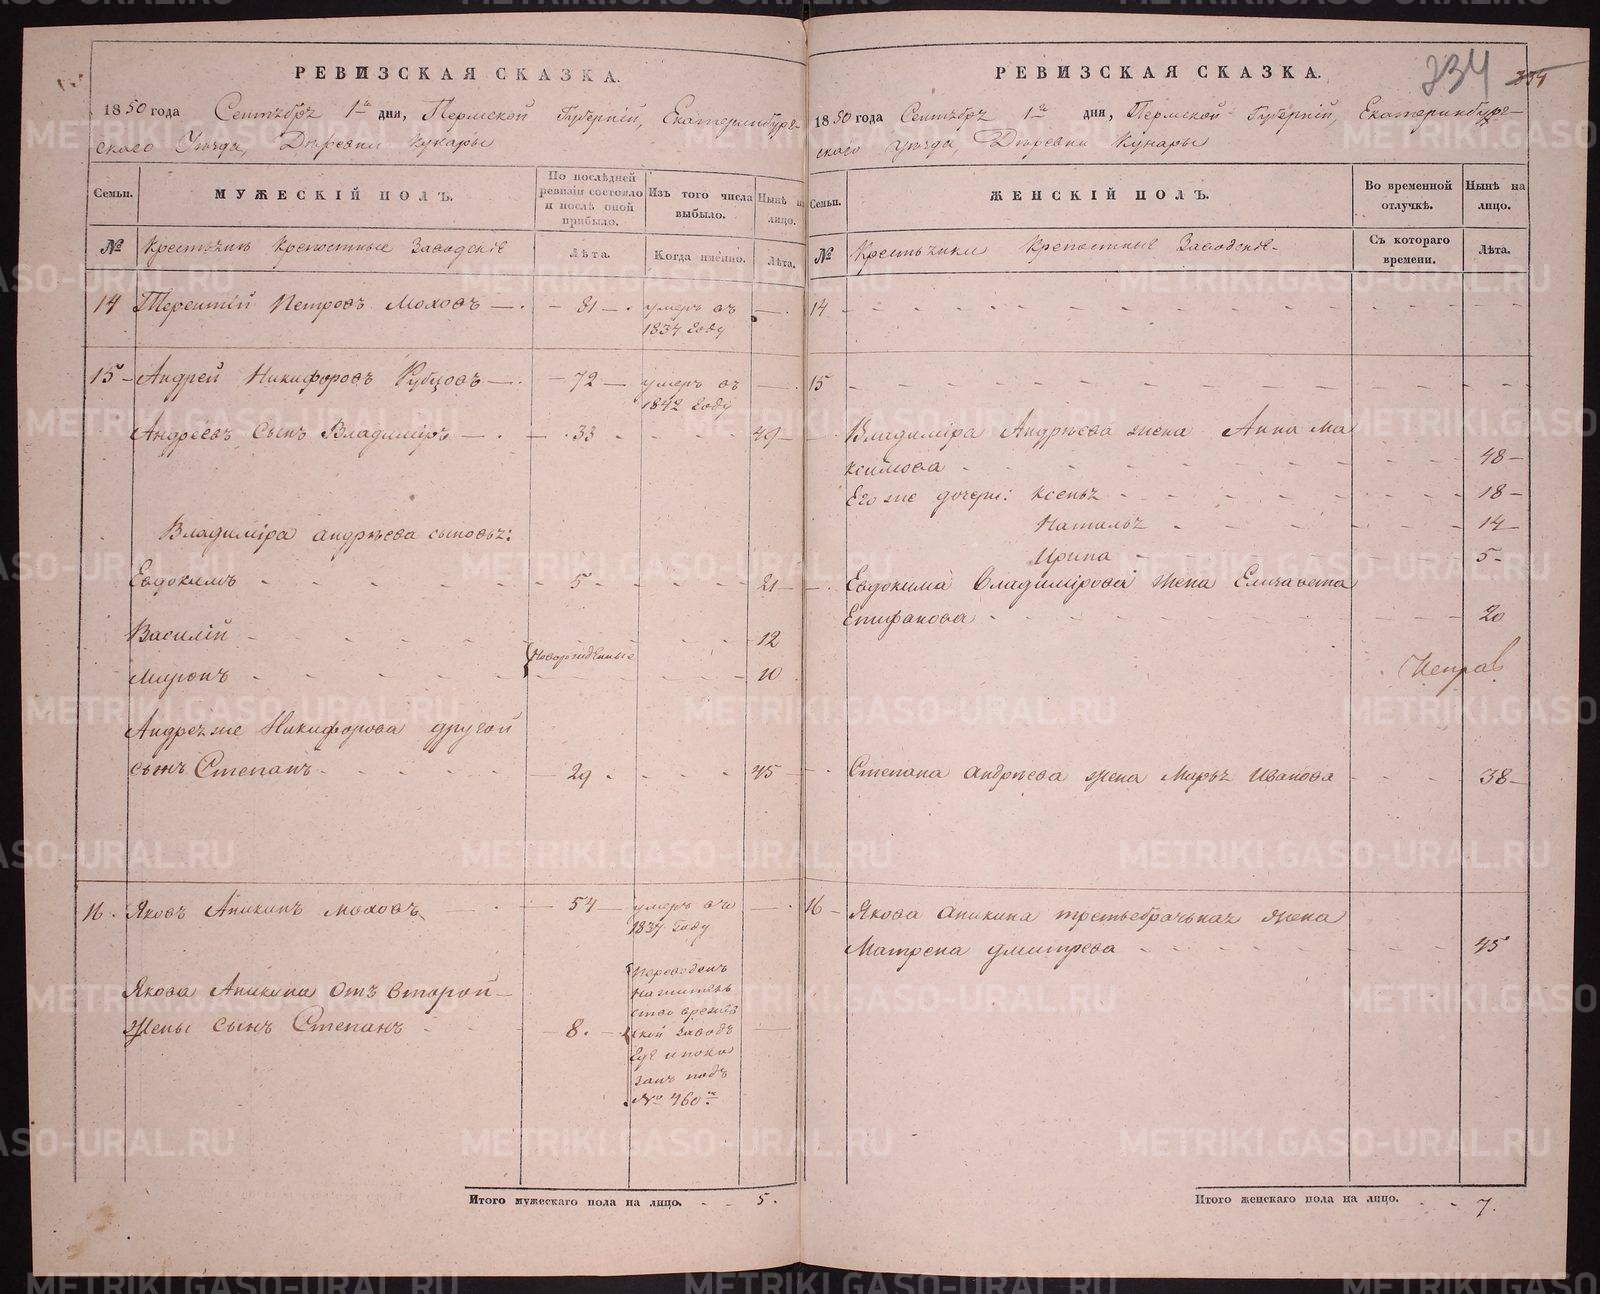 РЕВИЗСКАЯ СКАЗКА.
1850 года Сентября 1го дня, Пермской Губерніи, Екатеринбург-
скаго Уезда, Деревни Кунары
Семьи.
МУЖЕСКІЙ ПОЛЪ.
По послѣдней ревизіи состояло и послѣ оной прибыло.
Изъ того числа выбыло.
Нынѣ на лицо.
№
Крестьяне Крепостные Заводскіе
Лѣта.
Когда именно.
Лѣта.
14 Терентій Петровъ Моховъ — 81 — умеръ въ 1837 году —
15 – Андрей Никифоровъ Рубцовъ — 72 — умеръ въ 1842 году —
Андреевъ сынъ Владиміръ — 33 - 49 –
Владиміра андреева сыновья:
Евдокимъ - 5 - 21
Василій - 12
Новорожденные
Миронъ - 10
Андрея же Никифорова другой
сынъ Степанъ - 29 - 45
16 . Яковъ Аникинъ Моховъ — 54 — умеръ въ 1837 году —
Якова Аникина отъ второй
жены сынъ Степанъ - 8. -
Переведенъ
на
ской заводъ
где и пока
занъ подъ
№ 460м
Итого мужескаго пола на лицо. - - 5.
РЕВИЗСКАЯ СКАЗКА.
334
1850 года Сентября 1го дня, Пермской Губерніи, Екатеринбург-
скаго Уезда, Деревни Кунары
Семьи.
ЖЕНСКІЙ ПОЛЪ.
Во временной отлучкѣ.
Нынѣ на лицо.
№
Крестьянки Крепостные Заводскіе
Съ котораго времени.
Лѣта.
14
15
Владиміра Андреева жена Анна Ма
ксимова - 48 –
Его же дочери: Ксенья - 18 –
Наталья - 14
Ирина - 5 -
Евдокима Владимірова жена Елизавета
Епифанова - 20
Неправ
Степана Андреева жена Марья Иванова - 38 –
16 – Якова Аникина третьебрачная жена
Матрена Дмитрева - 45
Итого женскаго пола на лицо. - - 7.
METRIKI.GASO-URAL.RU